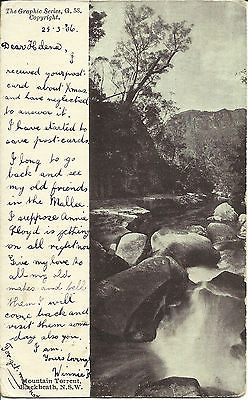 The Graphic Series, G. 58.
Copyright.
25-3-06.
Dear Helena,
I
received your post
card about Xmas
and have neglected
to answer it.
I have started to
save post-cards.
I long to go
back and see
my old friends
in the Mallee.
I suppose Annie
Lloyd is getting
on all right now
Give my love to
all my old
mates and tell
them I will
come back and
visit them some
day also you,
I am
Yours loving
Winnie
Mountain Torrent,
Blackheath, N.S.W.